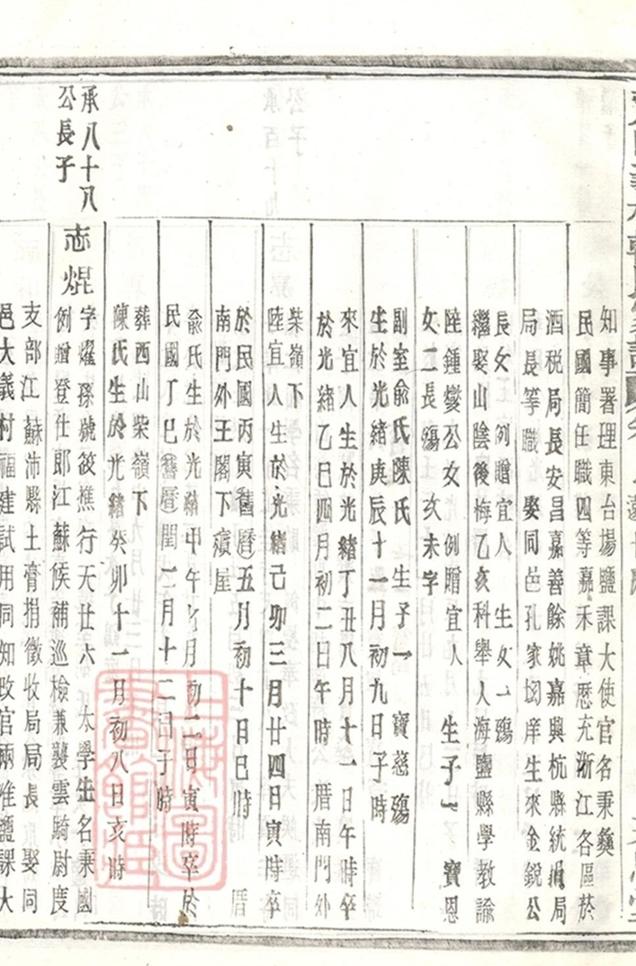 知事署理東台場鹽課大使官名秉彝
民國簡任職四等嘉禾章歷充浙江各區菸
酒稅局長安昌嘉善餘姚嘉興杭縣統捐局
局長等職 娶同邑孔家坳庠生來金銳公
長女 例贈宜人 生女一殤
繼娶山陰後梅乙亥科舉人海鹽縣學教諭
陸鍾燮公女 例贈宜人 生子一 寶恩
女二長殤 次未字
副室俞氏陳氏 生子一 寶慈殤
生於光緒庚辰十一月初九日子時
來宜人生於光緒丁丑八月十一日午時卒
於光緒乙巳四月初二日午時 厝南門外
柴嶺下
陸宜人生於光緒己卯三月廿四日寅時卒
於民國丙寅舊曆五月初十日巳時 厝
南門外王閣下殯屋
俞氏生於光緒甲午七月初二日寅時卒於
民國丁巳舊曆閏二月十二日子時
葬西山柴嶺下
陳氏生於光緒癸卯十一月初八日亥時
承八十八
公長子
志焜
字燿孫號筱樵行天廿六 太學生名秉國
例贈登仕郎江蘇候補巡檢兼襲雲騎尉度
支部江蘇沛縣土膏捐徵收局局長 娶同
邑大義村福建試用同知政官